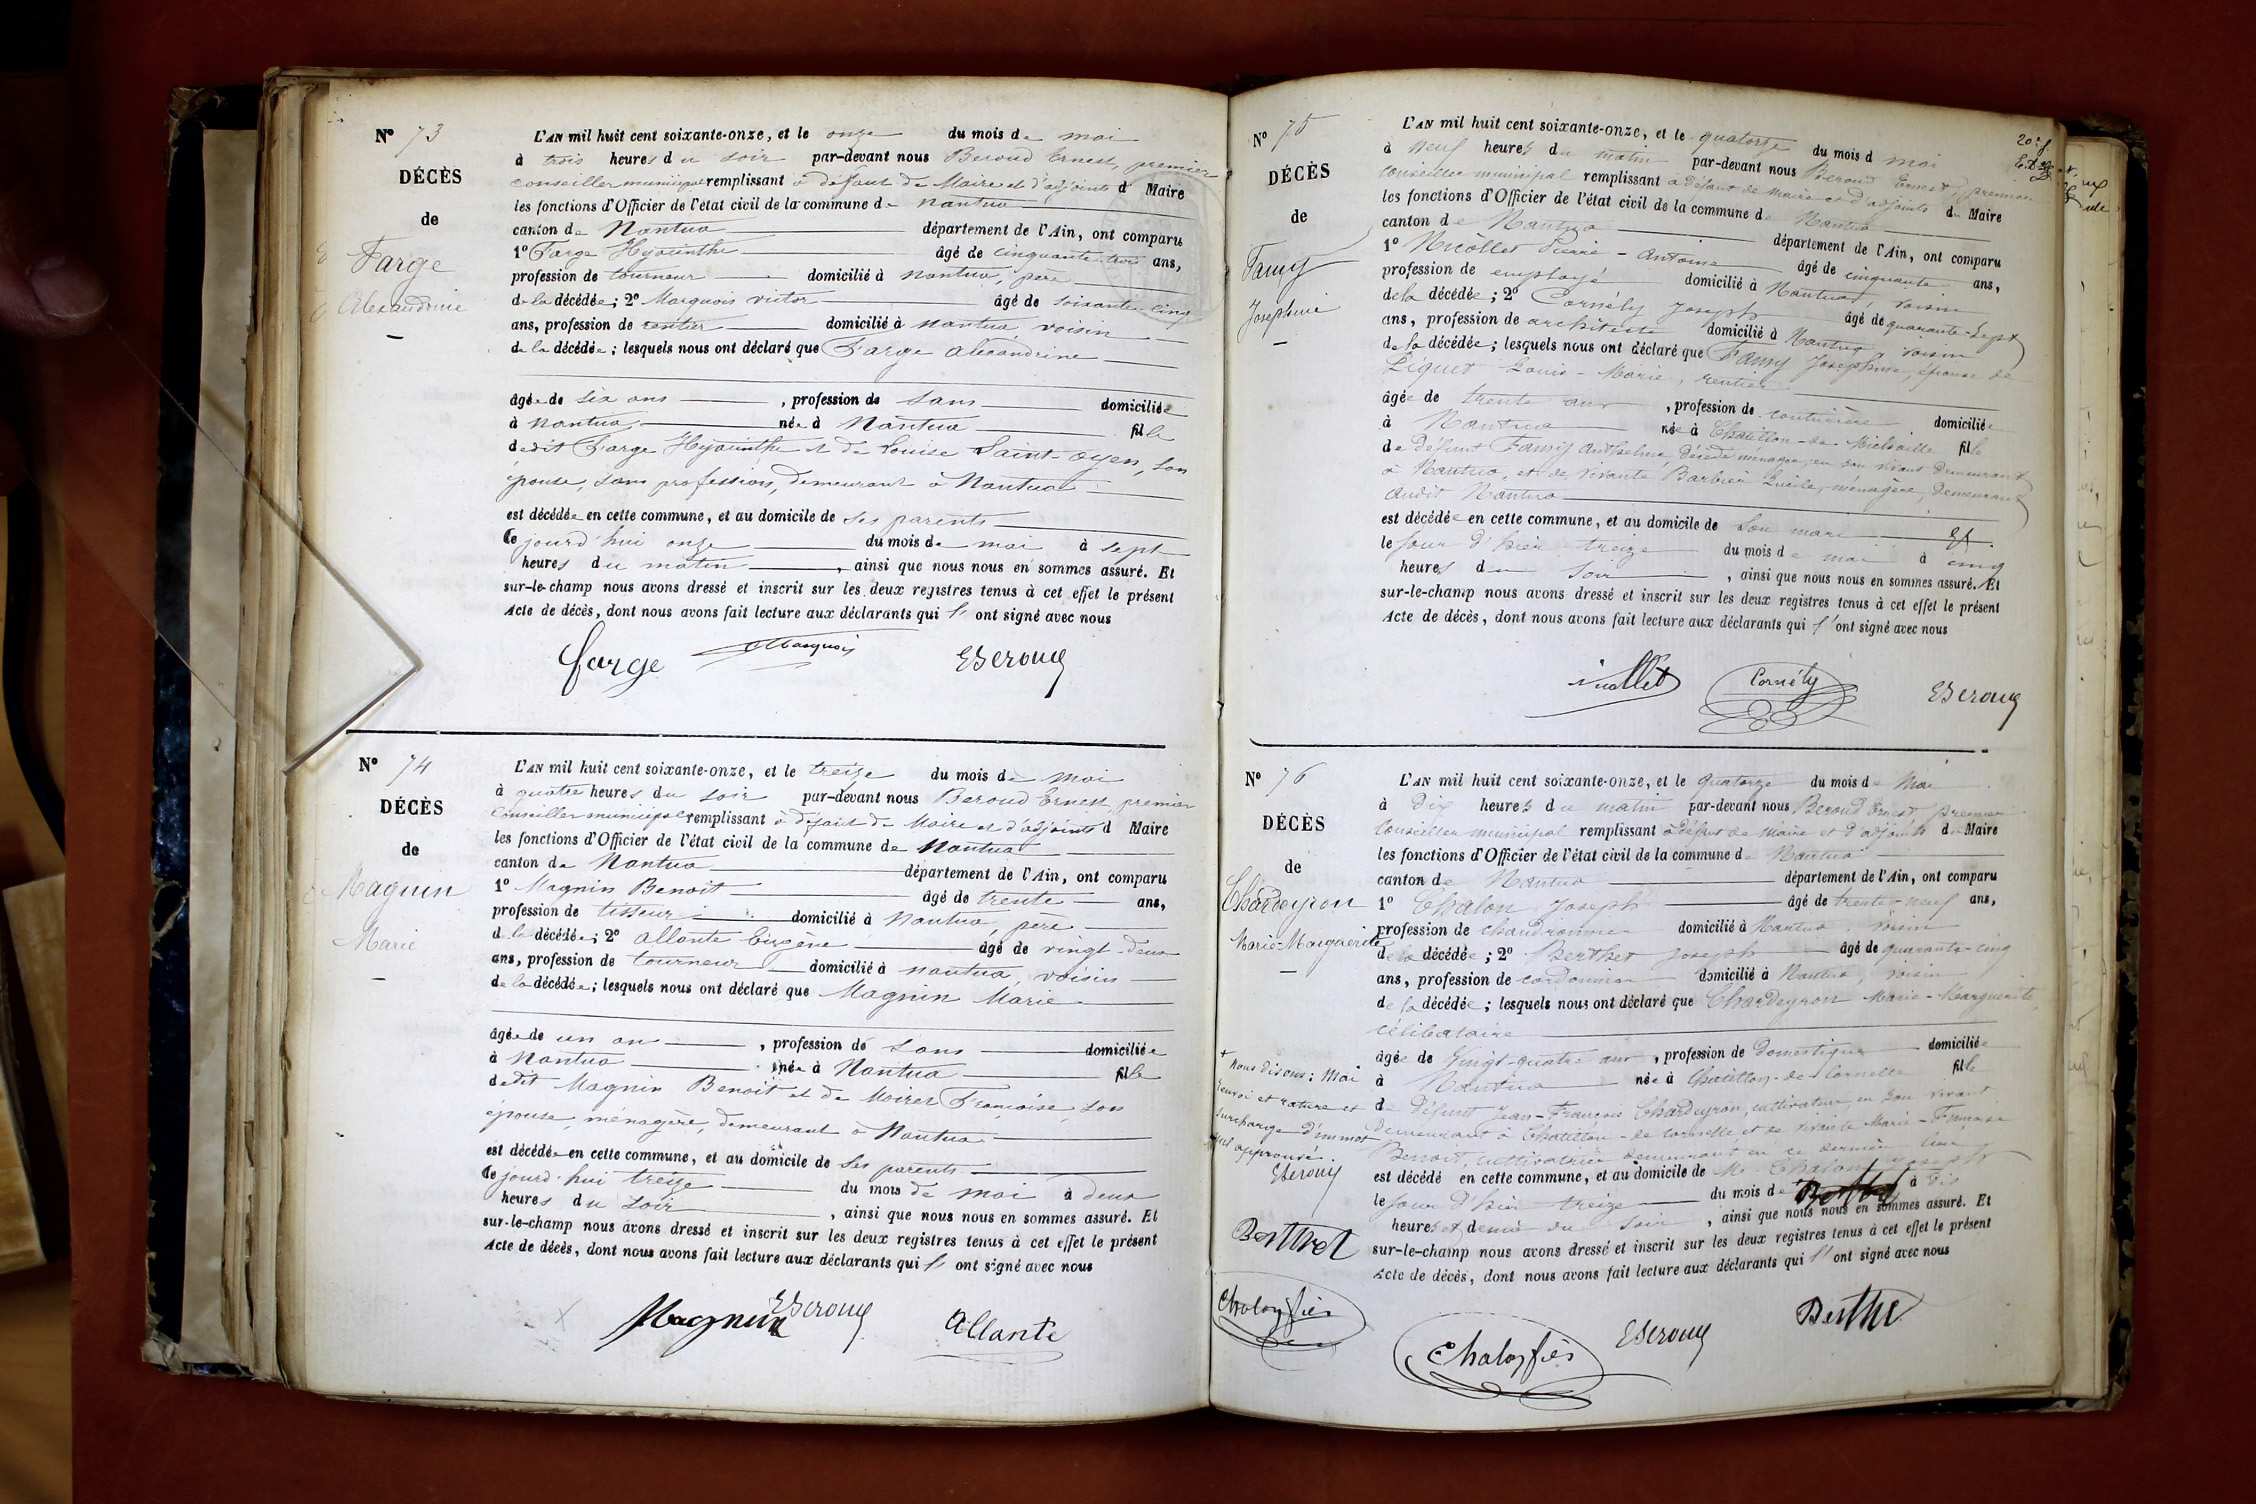 N° 73
DÉCÈS
de
Farge
Alexandrine
L'AN mil huit cent soixante-onze, et le onze du mois de mai
à trois heures du soir par-devant nous Beroud Ernest, premier
conseiller municipal remplissant à défaut de Maire et d'adjoints d Maire
les fonctions d'Officier de l'état civil de la commune de Nantua
canton de Nantua département de l'Ain, ont comparu
1° Farge Hyacinthe âgé de cinquante-trois ans,
profession de tourneur domicilié à Nantua, père
de la décédée; 2° Marquois Victor âgé de soixante-cinq
ans, profession de rentier domicilié à Nantua, voisin
de la décédée; lesquels nous ont déclaré que Farge Alexandrine
âgée de six ans, profession de sans domiciliée
à Nantua née à Nantua fille
dedit Farge Hyacinthe et de Louise Saint-Oyen, son
épouse, sans profession, demeurant à Nantua
est décédée en cette commune, et au domicile de ses parents
ce jourd'hui onze du mois de mai à sept
heures du matin, ainsi que nous nous en sommes assuré. Et
sur-le-champ nous avons dressé et inscrit sur les deux registres tenus à cet effet le présent
Acte de décès, dont nous avons fait lecture aux déclarants qui l' ont signé avec nous
farge Marquois EBeroud
N° 74
DÉCÈS
de
Magnin
Marie
L'AN mil huit cent soixante-onze, et le treize du mois de mai
à quatre heures du soir par-devant nous Beroud Ernest, premier
conseiller municipal remplissant à défaut de Maire et d'adjoints d Maire
les fonctions d'Officier de l'état civil de la commune de Nantua
canton de Nantua département de l'Ain, ont comparu
1° Magnin Benoit âgé de trente ans,
profession de tisseur domicilié à Nantua, père
d la décédée; 2° Allante Eugène âgé de vingt-deux
ans, profession de tourneur domicilié à Nantua, voisin
de la décédée; lesquels nous ont déclaré que Magnin Marie
âgée de un an, profession de sans domiciliée
à Nantua née à Nantua fille
dedit Magnin Benoit et de Moirer Françoise, son
épouse, ménagère, demeurant à Nantua
est décédée en cette commune, et au domicile de ses parents
ce jourd'hui treize du mois de mai à deux
heures du soir, ainsi que nous nous en sommes assuré. Et
sur-le-champ nous avons dressé et inscrit sur les deux registres tenus à cet effet le présent
Acte de décès, dont nous avons fait lecture aux déclarants qui l' ont signé avec nous
Magnin EBeroud Allante
N° 75
DÉCÈS
de
Famy
Joséphine
20e f.
L'AN mil huit cent soixante-onze, et le quatorze du mois d mai
à neuf heures du matin par-devant nous Beroud Ernest, premier
conseiller municipal remplissant à défaut de maire et d'adjoints de Maire
les fonctions d'Officier de l'état civil de la commune de Nantua
canton de Nantua département de l'Ain, ont comparu
1° Nicollet Pierre-Antoine âgé de cinquante ans,
profession de employé domicilié à Nantua, voisin
de la décédée; 2° Cornély Joseph âgé de quarante-sept
ans, profession de architecte domicilié à Nantua, voisin
de la décédée; lesquels nous ont déclaré que Famy Joséphine, épouse de
Piquet Louis-Marie, rentier
âgée de trente ans, profession de couturière domiciliée
à Nantua née à Chatillon-de-Michaille fille
de défunt Famy Anthelme en son vivant demeurant
à Nantua, et de vivante Barbier ménagère, demeurant
audit Nantua
est décédée en cette commune, et au domicile de son mari
le jour d'hier treize du mois de mai à cinq
heures du soir, ainsi que nous nous en sommes assuré. Et
sur-le-champ nous avons dressé et inscrit sur les deux registres tenus à cet effet le présent
Acte de décès, dont nous avons fait lecture aux déclarants qui l'ont signé avec nous
Nicollet Cornély EBeroud
N° 76
DÉCÈS
de
Chardeyron
Marie-Marguerite
L'AN mil huit cent soixante-onze, et le quatorze du mois de Mai
à Dix heures du matin par-devant nous Beroud Ernest, premier
conseiller municipal remplissant à défaut de maire et d'adjoints de Maire
les fonctions d'Officier de l'état civil de la commune de Nantua
canton de Nantua département de l'Ain, ont comparu
1° Chalon Joseph âgé de trente-neuf ans,
profession de chaudronnier domicilié à Nantua, voisin
de la décédée; 2° Berthet Joseph âgé de quarante-cinq
ans, profession de cordonnier domicilié à Nantua, voisin
de la décédée; lesquels nous ont déclaré que Chardeyron Marie-Marguerite,
célibataire
âgée de Vingt-quatre ans, profession de Domestique domiciliée
à Nantua née à Chatillon-de-Cornelle fille
de Défunt Jean-François Chardeyron, cultivateur, en son vivant
demeurant à Chatillon-de-Cornelle et de vivante Marie-
Benoit, cultivatrice demeurant en ce dernier lieu
est décédé en cette commune, et au domicile de Mr Chalon Joseph
le jour d'hier treize du mois de à dix
heures et demie du soir, ainsi que nous nous en sommes assuré. Et
sur-le-champ nous avons dressé et inscrit sur les deux registres tenus à cet effet le présent
Acte de décès, dont nous avons fait lecture aux déclarants qui l' ont signé avec nous
+ Nous disons: Mai
renvoi et rature et
surcharge d'un mot
nul approuvé.
EBeroud
Berthet
Chalon fils
Chalon fils EBeroud Berthe